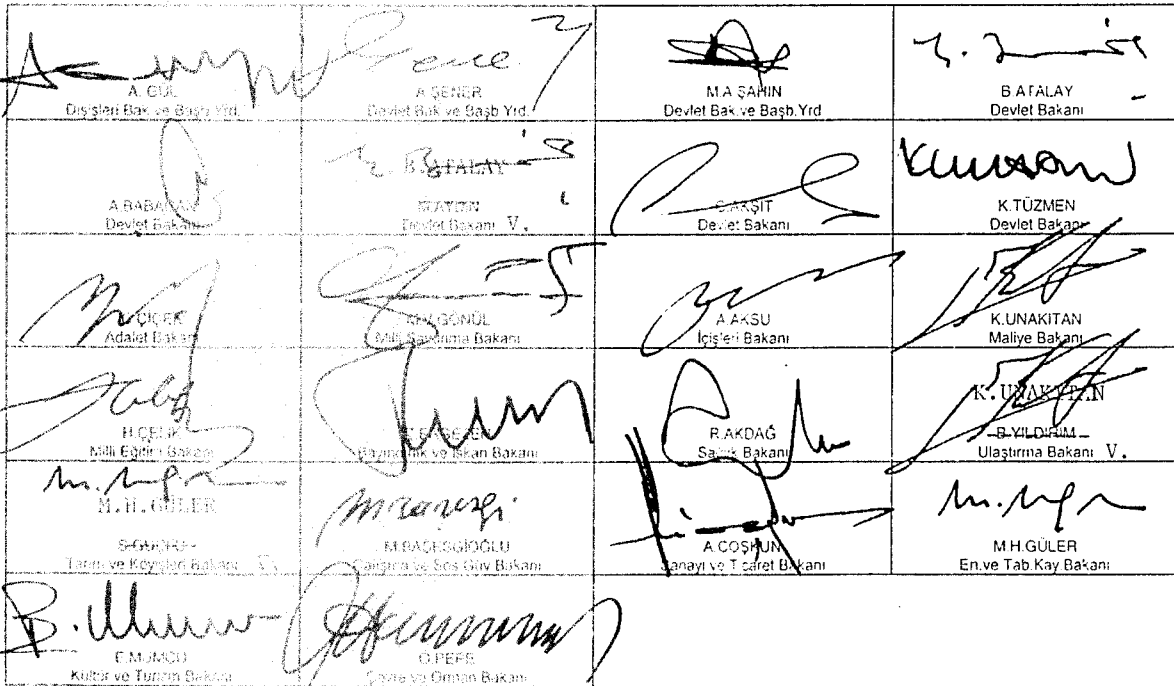 A. GÜL
Dışişleri Bak.ve Başb.Yrd.
A.ŞENER
Devlet Bak.ve Başb.Yrd.
M.A.ŞAHİN
Devlet Bak.ve Başb.Yrd
B.ATALAY
Devlet Bakanı
A.BABACAN
Devlet Bakanı
B.ATALAY
M.AYDIN
Devlet Bakanı V.
G.AKŞİT
Devlet Bakanı
K.TÜZMEN
Devlet Bakanı
C.ÇİÇEK
Adalet Bakanı
M.V.GÖNÜL
Milli Savunma Bakanı
A.AKSU
İçişleri Bakanı
K.UNAKITAN
Maliye Bakanı
H.ÇELİK
Milli Eğitim Bakanı
Bayındırlık ve İskan Bakanı
R.AKDAĞ
Sağlık Bakanı
K.UNAKITAN
B.YILDIRIM
Ulaştırma Bakanı V.
M.H.GÜLER
Tarım ve Köyişleri Bakanı V.
M.BAŞESGİOĞLU
Çalışma ve Sos.Güv.Bakanı
A.COŞKUN
Sanayi ve Ticaret Bakanı
M.H.GÜLER
En.ve Tab.Kay.Bakanı
E.MUMCU
Kültür ve Turizm Bakanı
O.PEPE
Çevre ve Orman Bakanı